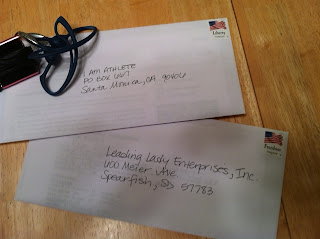 Liberty
I AM ATHLETE
PO BOX 667
Santa Monica, CA 90406
Freedom
Leading Lady Enterprises, Inc
1100 Meier Ave
Spearfish, SD 57783